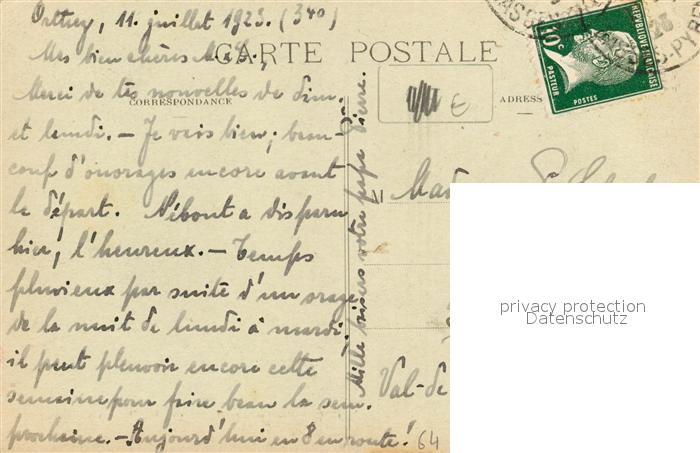 Orthez, 11 juillet 1923. (34º)
Mes bien chères M. & A.,
CARTE POSTALE
Merci de tes nouvelles de dim.
CORRESPONDANCE
ADRESSE
et lundi. — Je vais bien; beau-
coup d'ouvrages encore avant
le départ. Nébout a disparu
hier, l'heureux. — Temps
pluvieux par suite d'un orage
de la nuit de lundi à mardi;
il peut pleuvoir encore cette
semaine pour faire beau la sem.
prochaine. — Aujourd'hui en 8 en route!
Mille baisers votre papa Pierre.
€
M
Mad
Val-de
64
10c
REPUBLIQUE FRANÇAISE
PASTEUR
POSTES
privacy protection
Datenschutz